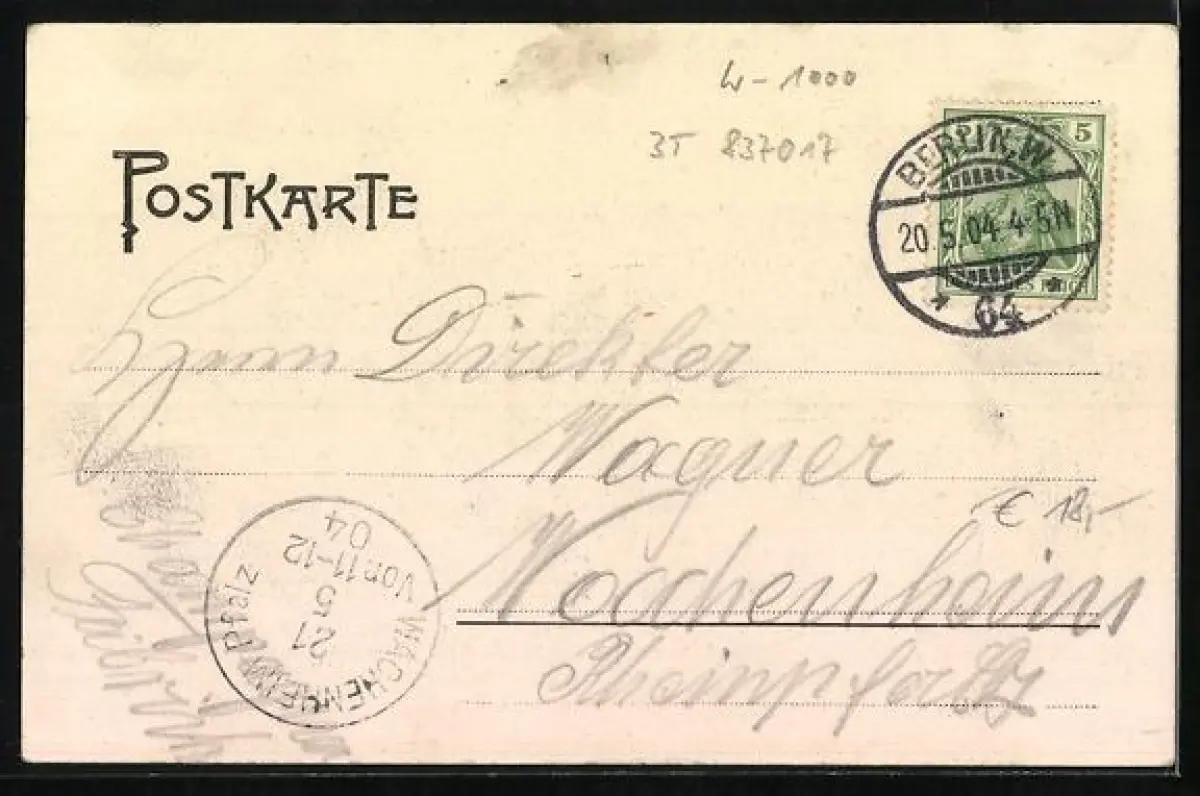 W-1000
3T 837017
POSTKARTE
5
BERLIN, W.
20.5.04.4-5N
* 64 *
DEUTSCHES REICH
Herrn Direkter
Wagner
€ 18,-
Wachenheim
Rheinpfalz
WACHENHEIM Pfalz
21
5
Vor 11-12
04